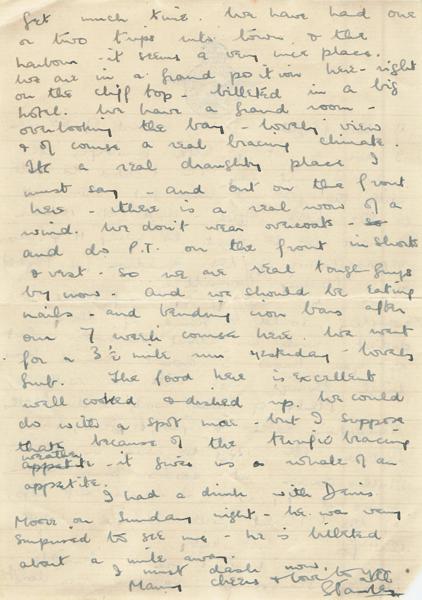 get much time. We have had one
or two trips into town, & the
harbour - it seems a very nice place.
We are in a grand position here - right
on the cliff top - billeted in a big
hotel. We have a grand room -
overlooking the bay - lovely view
& of course a real bracing climate.
Its a real draughty place I
must say - and out on the front
here - there is a real wow of a
wind. We don't wear overcoats - so
and do P.T. on the front in shorts
& vest - so we are real tough guys
by now - and we should be eating
nails - and bending iron bars after
our 7 week course here. We went
for a 3½ mile run yesterday - lovely
The food here is excellent
well cooked & dished up. We could
do with a spot more - but I suppose
thats because of the terrific bracing
weather appetite - it gives us a whale of an
appetite.
I had a drink with Denis
Moore on Sunday night - he was very
surprised to see me - he is billeted
about a mile away.
I must dash now.
Many cheers & love to you all
Stanley